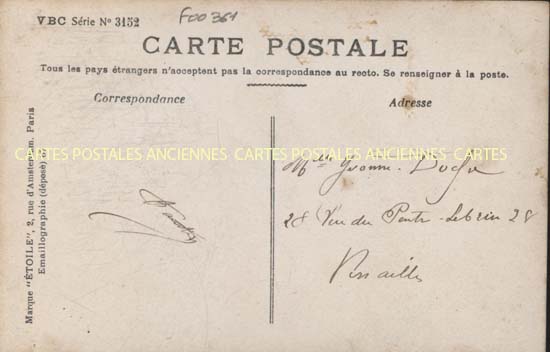 VBC Série Nº 3152
F00361
CARTE POSTALE
Tous les pays étrangers n'acceptent pas la correspondance au recto. Se renseigner à la poste.
Correspondance
Adresse
Marque "ÉTOILE", 2, rue d'Amsterdam, Paris
Emaillographie (déposé)
CARTES POSTALES ANCIENNES CARTES POSTALES ANCIENNES CARTES
Mlle Yvonne
28 Rue du Peintre Lebrun 28
Versailles